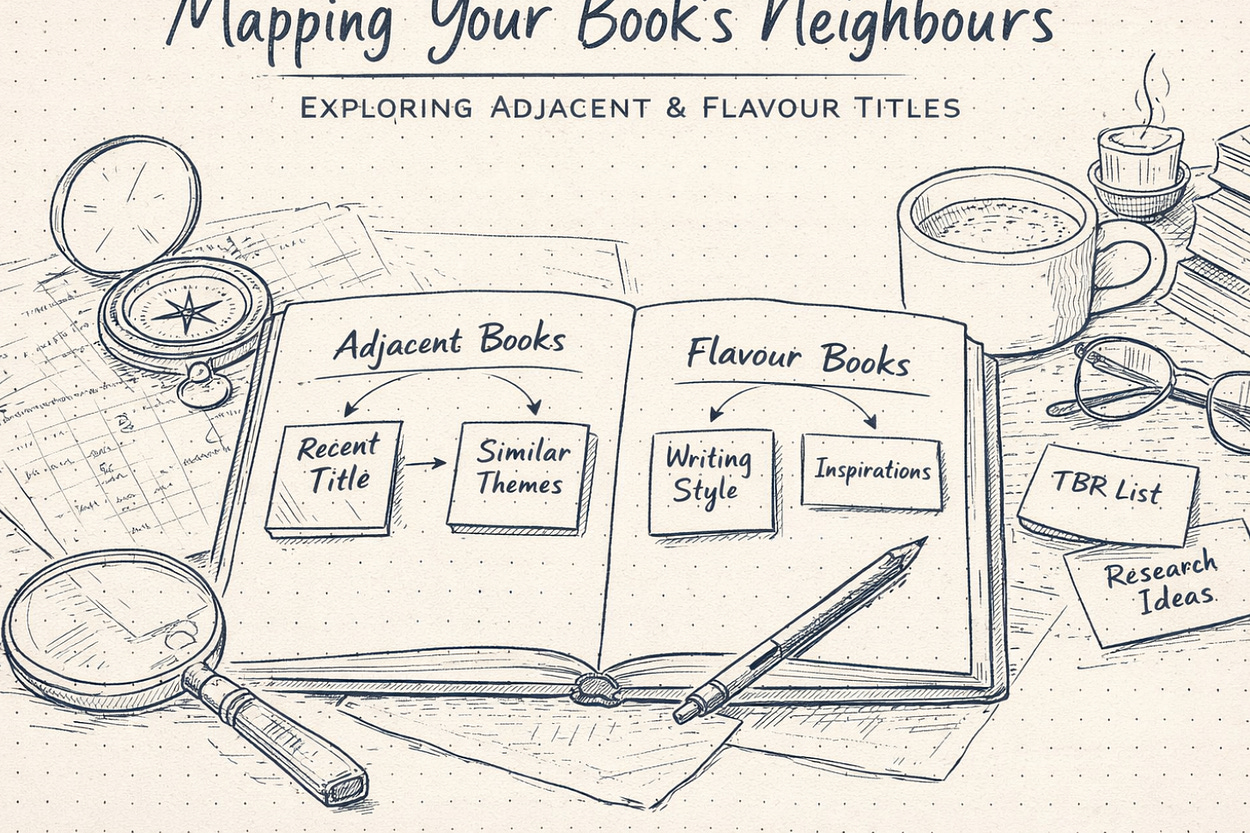 Mapping Your Book's Neighbours
Exploring Adjacent & Flavour Titles
Adjacent Books
Flavour Books
Recent
Title
Similar
Themes
Writing
Style
Inspirations
TBR List
Research
Ideas